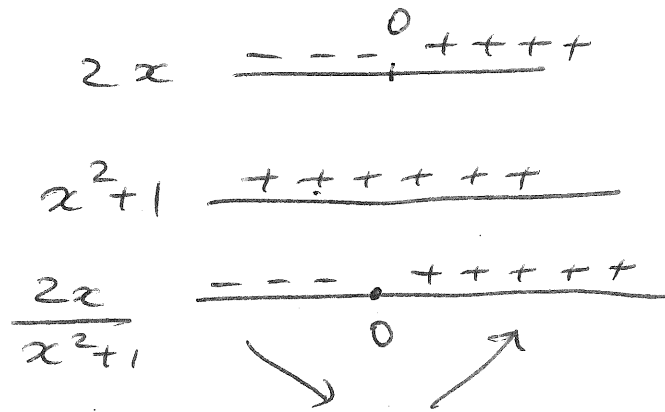 0
2x - - - + + + +
x²+1 + + + + + +
2x/x²+1 - - - + + + + +
0